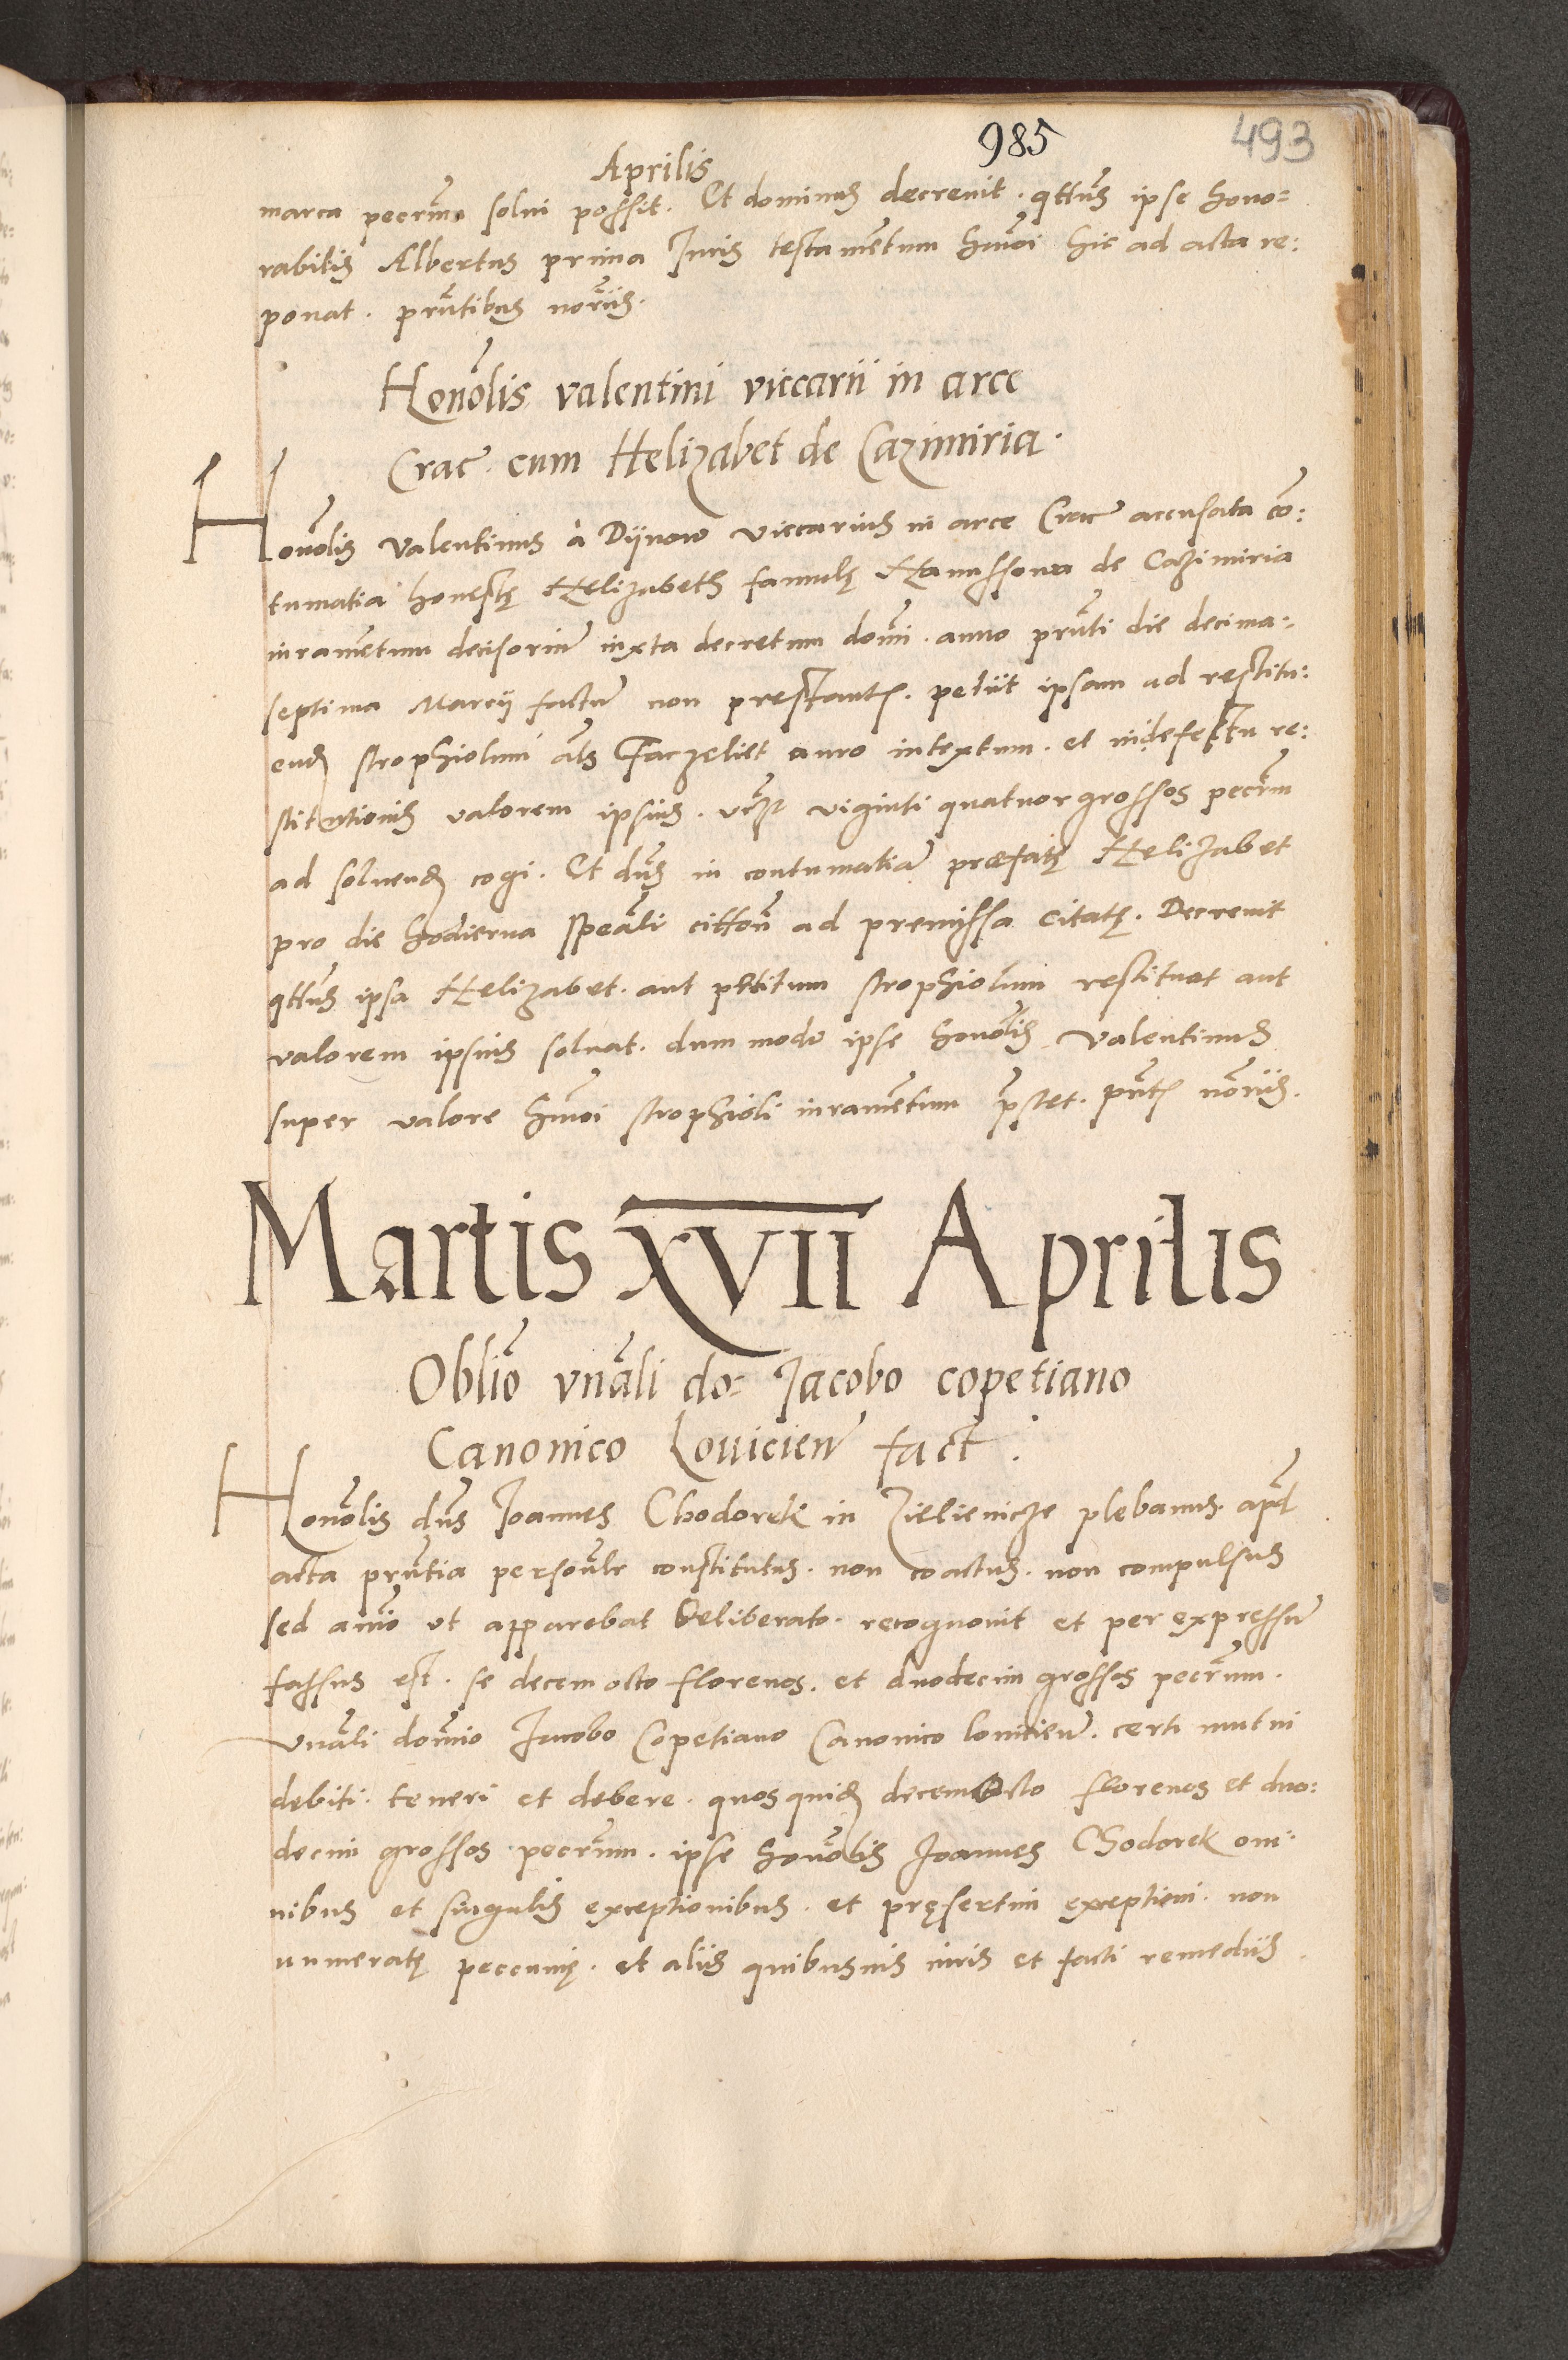 985
493
Aprilis
marca pecrum solui possit. Et dominus decreuit. qttus ipse hono=
rabilis Albertus prima Iuris testamentum hmoi hic ad acta re:
ponat. pruntibus notriis.
Honolis valentini viccarii in arce
Crac. cum Helizabet de Cazimiria.
Honolis Valentinus à Dijnow viccarius in arce Crac accusata co:
tumatia honestę Helizabeth famulę Hanussowa de Cazimiria
iuramentum decisorium iuxta decretum domi. anno prnti die decima=
septima Marcij factum non prestantis. petiit ipsam ad restitu:
end strophiolum als Faczeliet auro intextum. et in defectu re:
stitutionis valorem ipsius. vczt viginti quatuor grossos pecrm
ad soluend cogi. Et dns in contumatia praefatę Helizabet
pro die hodierna speali cittone ad premissa citatę. Decreuit
qttus ipsa Helizabet. aut pttitum strophiolum restituat aut
valorem ipsius soluat. dummodo ipse honolis Valentinus
super valore hmoi strophioli iuramentum pstet. pntis notriis.
Martis XVII Aprilis
Oblio vnali do: Iacobo copetiano
Canonico Louicien fact.
Honolis dns Ioannes Chodorek in Zielienicze plebanus. apd
acta prntia personalr constitutus. non coactus. non compulsus
sed animo vt apparebat deliberato. recognouit et per expressum
fassus est. se decem octo florenos. et duodecim grossos pecrum.
vnali domino Iacobo Copetiano Canonico louicien. certi mutui
debiti. teneri et debere. quos quid decem Octo florenos et duo:
decim grossos pecrum. ipse honolis Ioannes Chodorek om:
nibus et singulis exceptionibus. et pręsertim exceptioni. non
numeratę peccunię. et aliis quibusuis iuris et facti remediis.